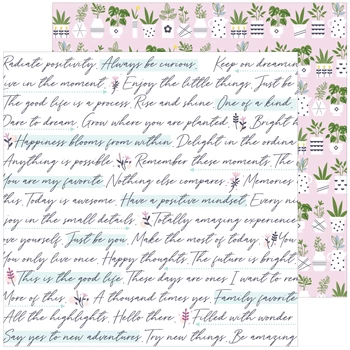 Radiate positivity. Always be curious. Keep on dreamin
ive in the moment. Enjoy the little things. Just be
The good life is a process. Rise and shine. One of a kind.
Dare to dream. Grow where you are planted. Bright
Happiness blooms from within. Delight in the ordina
Anything is possible. Remember these moments. The
You are my favorite. Nothing else compares. Memories
this. Today is awesome. Have a positive mindset. Every
joy in the small details. Totally amazing experience
ove yourself. Just be you. Make the most of today. You
You only live once. Happy thoughts. The future is bright
This is the good life. These days are ones I want to re
More of this. A thousand times yes. Family favorite
All the highlights. Hello there. Filled with wonder
Say yes to new adventures. Try new things. Be amazing